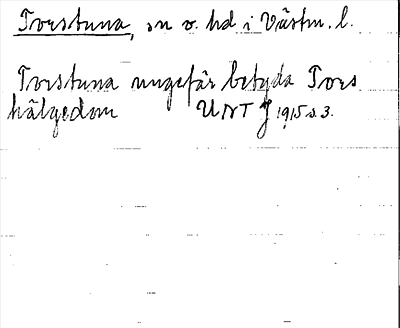 Torstuna, sn o. hd i Västm. l.
Torstuna ungefär betyda Tors
hälgedom UNT J 1915 s. 3.